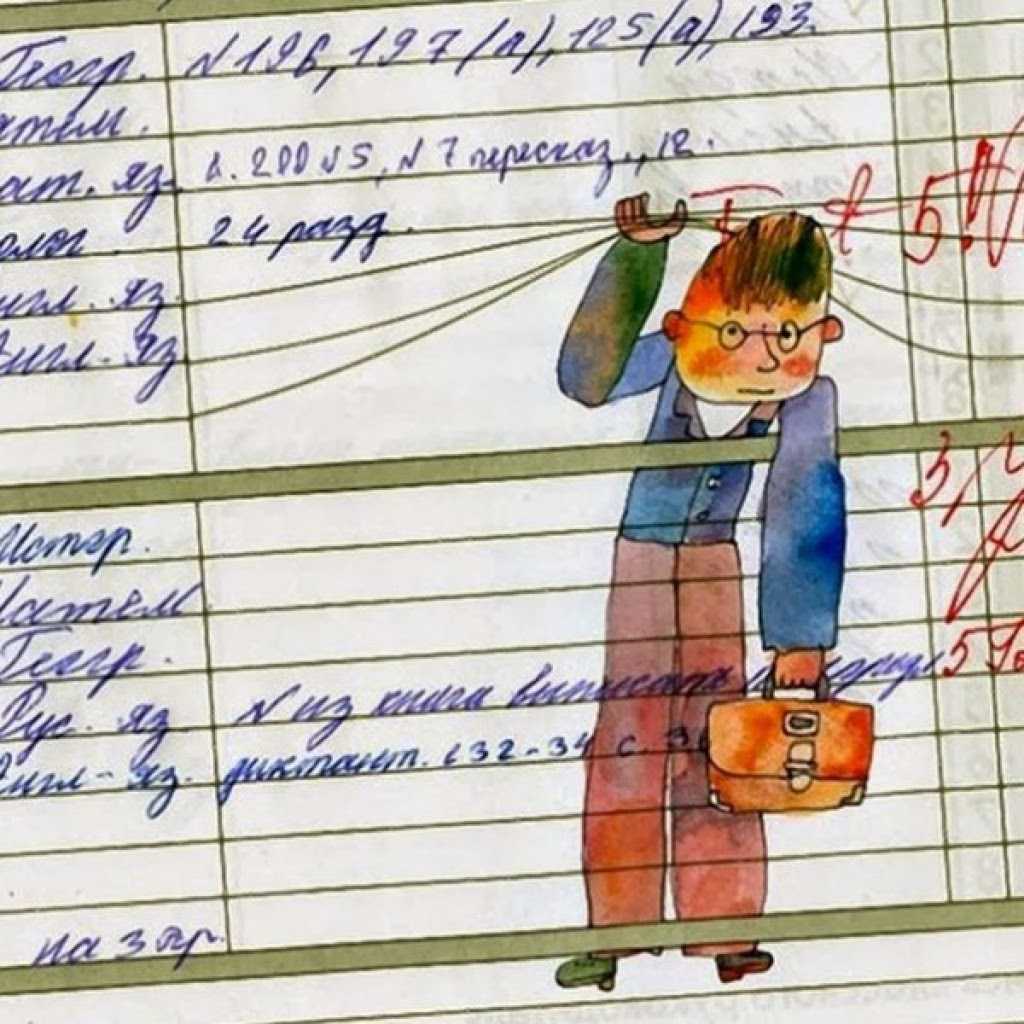 Геогр. №196, 197(а), 125(а), 193.
атем.
ат. яз. №7 пересказ., 12.
олог 24 разд. 5!
нгл. яз.
Англ. яз
Истор. 3
Матем
Геогр. 5
Рус. яз № из книги выписать
Англ. яз. диктант. с 32-34 с. 3
на 3 пр.